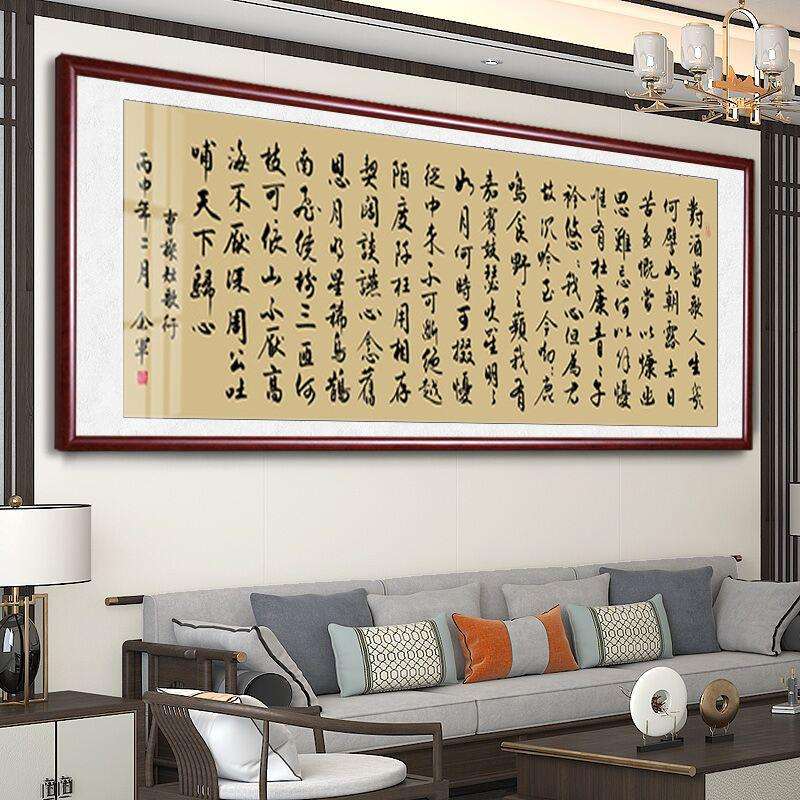 對酒當歌人生幾
何譬如朝露去日
苦多慨當以慷幽
思難忘何以解憂
唯有杜康青々子
衿悠々我心但為君
故沉吟至今呦々鹿
鳴食野之蘋我有
嘉賓鼓瑟吹笙明々
如月何時可掇憂
從中來不可斷絕越
陌度阡枉用相存
契闊談讌心念舊
恩月明星稀烏鵲
南飛繞樹三匝何
枝可依山不厭高
海不厭深周公吐
哺天下歸心
曹操短歌行
丙申年二月